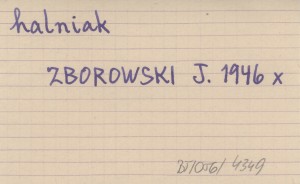 halniak
ZBOROWSKI J. 1946 x
4349